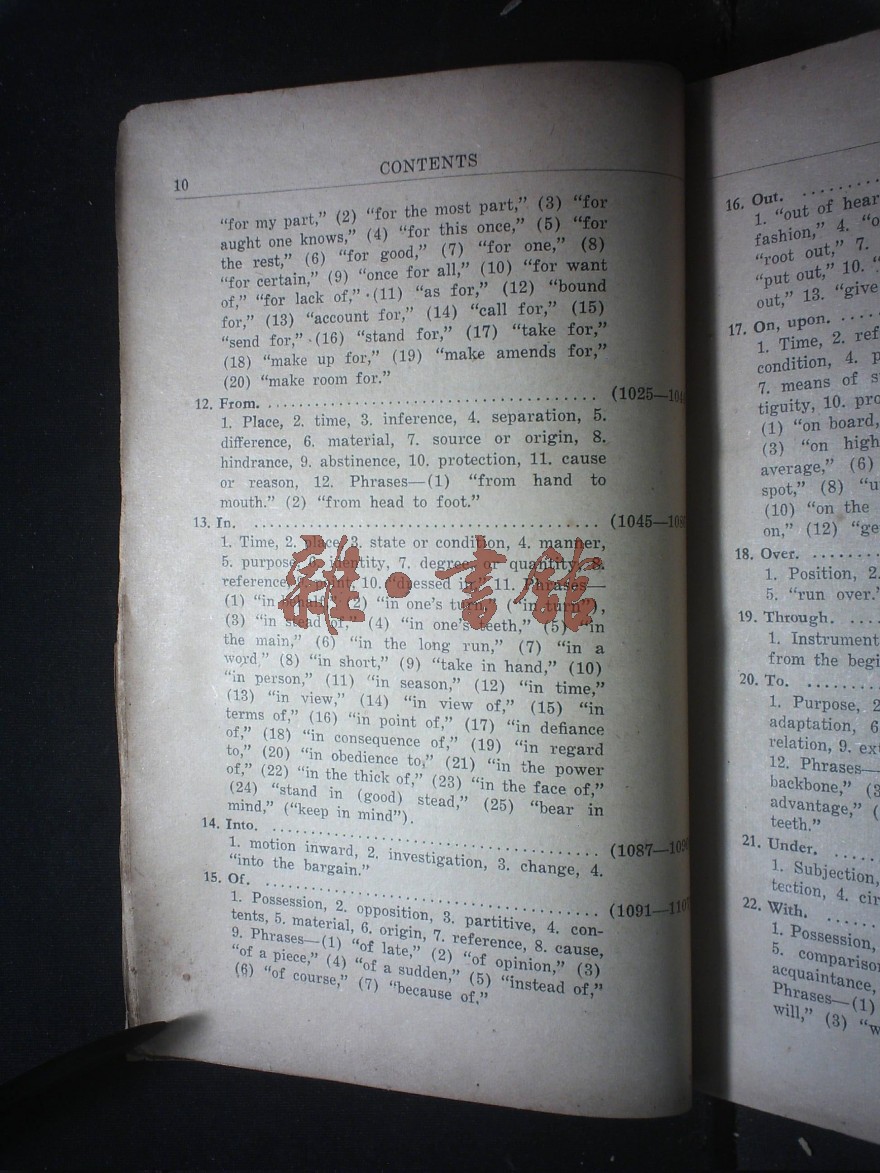 10
CONTENTS
“for my part,” (2) “for the most part,” (3) “for
aught one knows,” (4) “for this once,” (5) “for
the rest,” (6) “for good,” (7) “for one,” (8)
“for certain,” (9) “once for all,” (10) “for want
of,” “for lack of,” (11) “as for,” (12) “bound
for,” (13) “account for,” (14) “call for,” (15)
“send for,” (16) “stand for,” (17) “take for,”
(18) “make up for,” (19) “make amends for,”
(20) “make room for.”
12. From. ........................................ (1025—
1. Place, 2. time, 3. inference, 4. separation, 5.
difference, 6. material, 7. source or origin, 8.
hindrance, 9. abstinence, 10. protection, 11. cause
or reason, 12. Phrases—(1) “from hand to
mouth.” (2) “from head to foot.”
13. In. ........................................ (1045—
1. Time, 2. place, 3. state or condition, 4. manner,
5. purpose, 6. identity, 7. degree or quantity, 8.
reference, 9. point, 10. “dressed in,” 11. Phrases—
(1) “in behalf,” (2) “in one's turn,” (“in turn”),
(3) “in stead of,” (4) “in one's teeth,” (5) “in
the main,” (6) “in the long run,” (7) “in a
word,” (8) “in short,” (9) “take in hand,” (10)
“in person,” (11) “in season,” (12) “in time,”
(13) “in view,” (14) “in view of,” (15) “in
terms of,” (16) “in point of,” (17) “in defiance
of,” (18) “in consequence of,” (19) “in regard
to,” (20) “in obedience to,” (21) “in the power
of,” (22) “in the thick of,” (23) “in the face of,”
(24) “stand in (good) stead,” (25) “bear in
mind,” (“keep in mind”).
14. Into. ........................................ (1087—
1. motion inward, 2. investigation, 3. change, 4.
“into the bargain.”
15. Of. ........................................ (1091—
1. Possession, 2. opposition, 3. partitive, 4. con-
tents, 5. material, 6. origin, 7. reference, 8. cause,
9. Phrases—(1) “of late,” (2) “of opinion,” (3)
“of a piece,” (4) “of a sudden,” (5) “instead of,”
(6) “of course,” (7) “because of.”
雜·書館
16. Out. ..........
1. “out of
fashion,” 4.
“root out,” 7.
“put out,” 10.
out,” 13. “give
17. On, upon. ....
1. Time, 2.
condition, 4.
7. means of
tiguity, 10.
(1) “on board,
(3) “on high
average,” (6)
spot,” (8)
(10) “on the
on,” (12)
18. Over. ........
1. Position, 2.
5. “run over.”
19. Through. ....
1. Instrument
from the
20. To. ........
1. Purpose, 2
adaptation, 6
relation, 9.
12. Phrases—
backbone,” (3
advantage,” (
teeth.”
21. Under. .....
1. Subjection,
tection, 4.
22. With. .....
1. Possession,
5.
acquaintance,
Phrases—(1)
will,” (3)